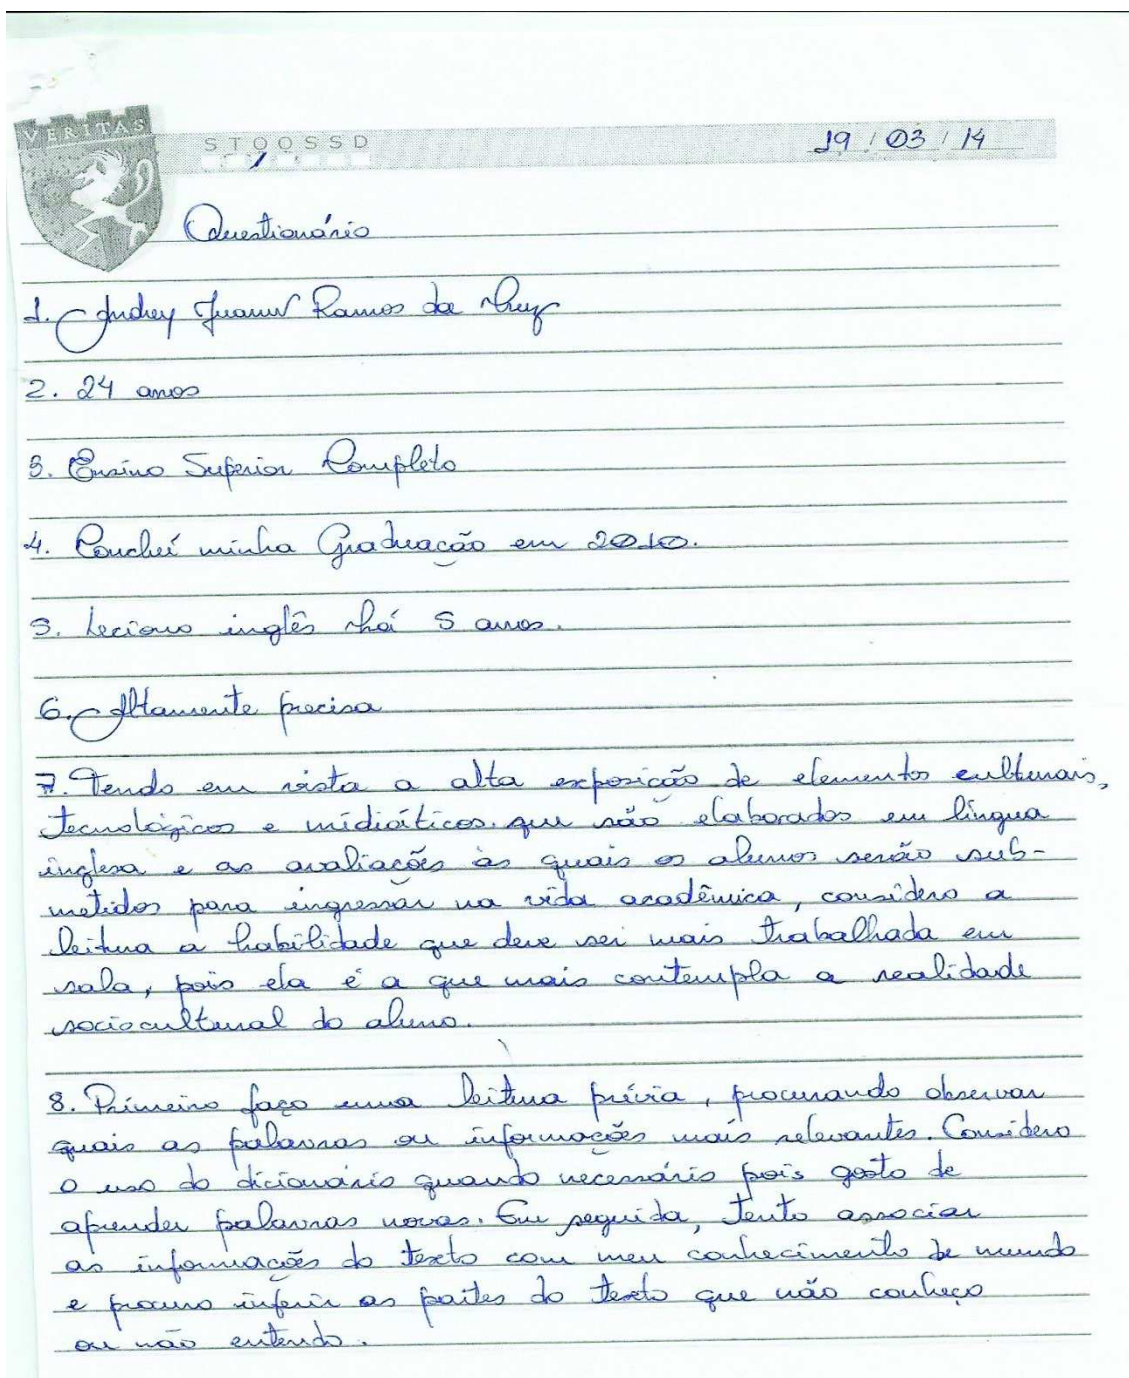 VERITAS
S T Q Q S S D
19 / 03 / 14
Questionário
1. Andrey Ramos da
2. 24 anos
3. Ensino Superior Completo
4. Concluí minha Graduação em 2010.
5. Leciono inglês há 5 anos.
6. Altamente precisa
7. Tendo em vista a alta exposição de elementos culturais,
tecnológicos e midiáticos que são elaborados em língua
inglesa e as avaliações às quais os alunos serão sub-
metidos para ingressar na vida acadêmica, considero a
leitura a habilidade que deve ser mais trabalhada em
sala, pois ela é a que mais contempla a realidade
sociocultural do aluno.
8. Primeiro faço uma leitura prévia, procurando observar
quais as palavras ou informações mais relevantes. Considero
o uso do dicionário quando necessário pois gosto de
aprender palavras novas. Em seguida, tento associar
as informações do texto com meu conhecimento de mundo
e procuro inferir as partes do texto que não conheço
ou não entendo.